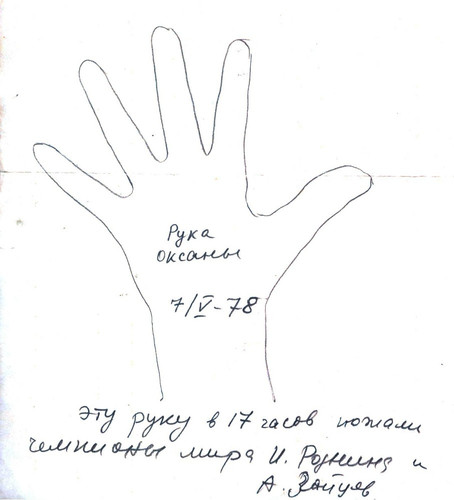 Рука
Оксаны
7/V-78
Эту руку в 17 часов пожали
чемпионы мира И. Роднина и
А. Зайцев